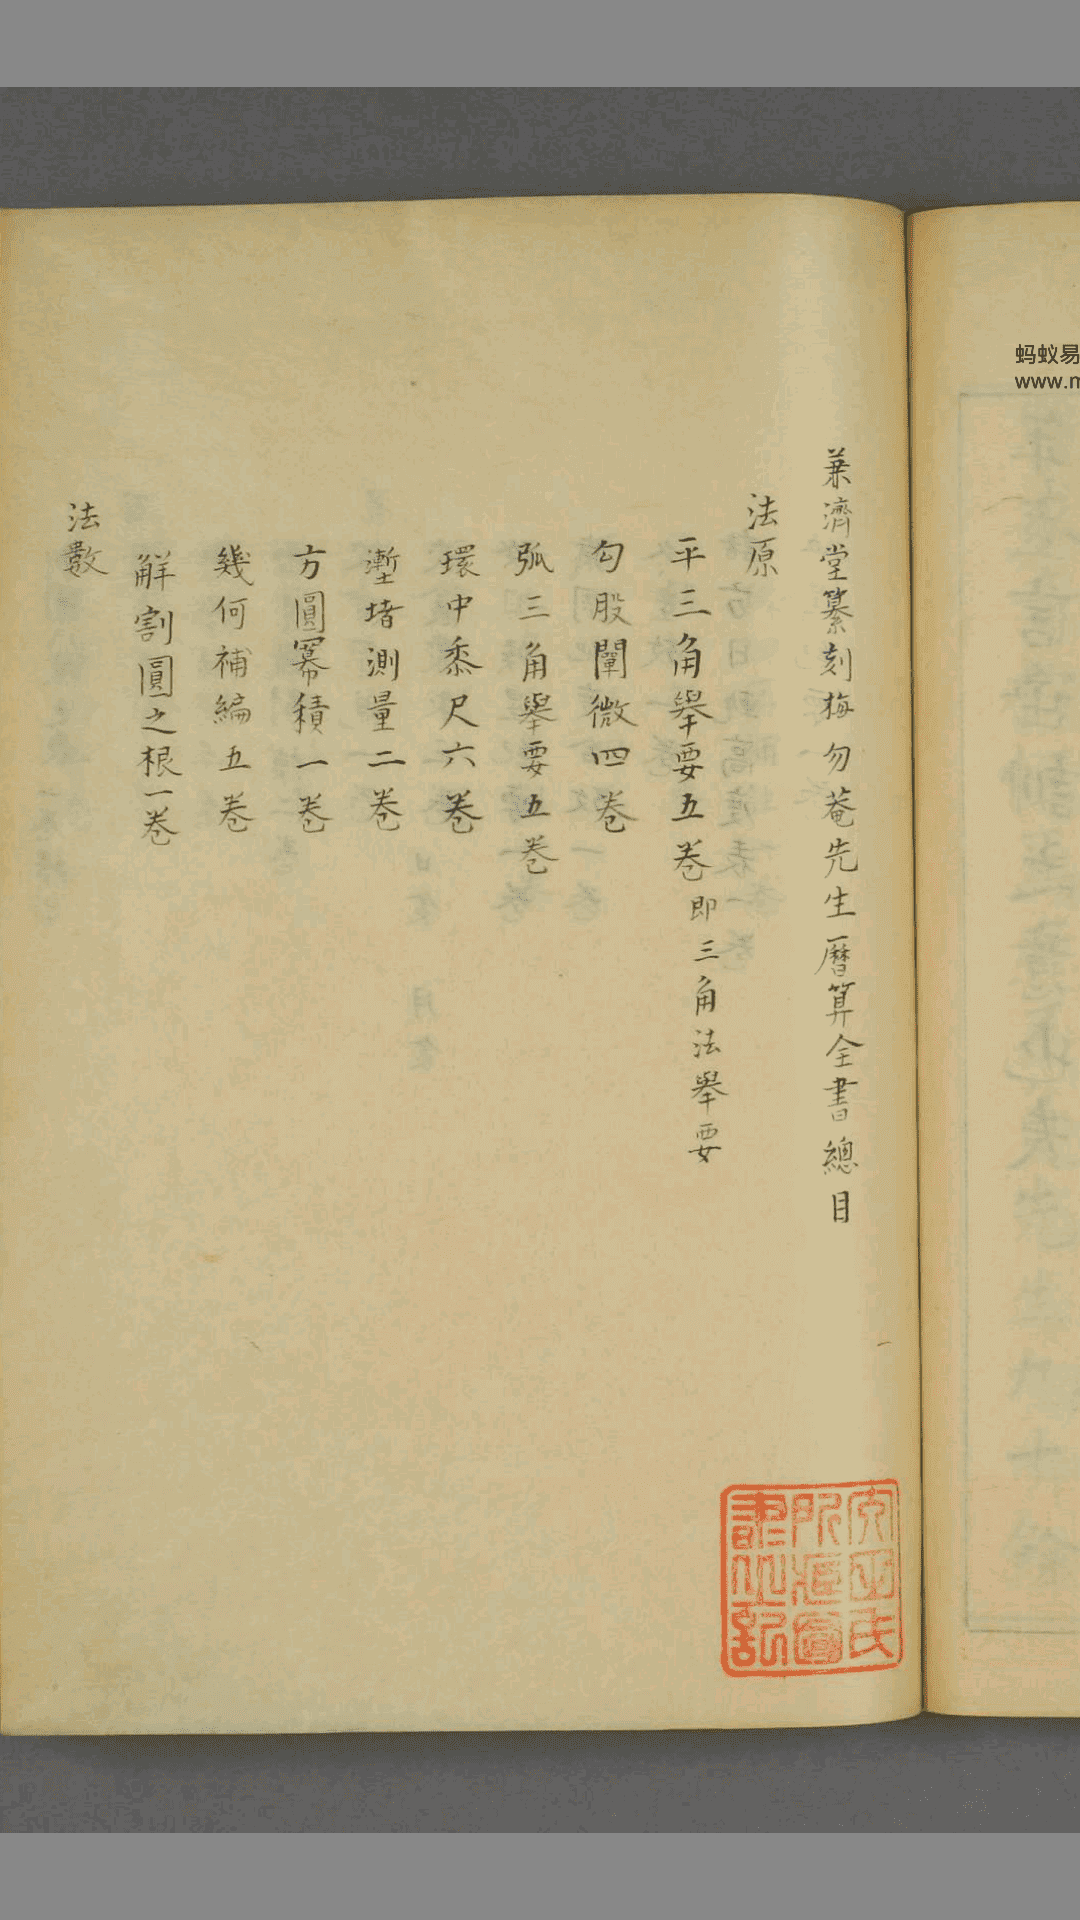 兼濟堂纂刻梅勿菴先生曆算全書總目
法原
平三角舉要五卷即三角法舉要
勾股闡微四卷
弧三角舉要五卷
環中黍尺六卷
塹堵測量二卷
方圓冪積一卷
幾何補編五卷
解割圓之根一卷
法數
蚂蚁易
www.m